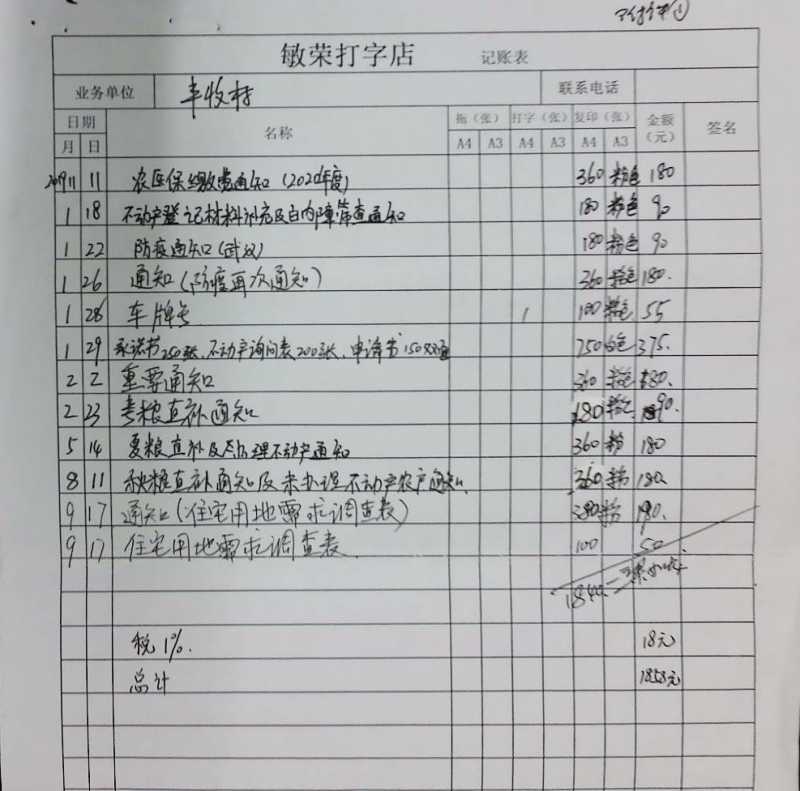 敏荣打字店 记账表
业务单位 丰收村 联系电话
日期 名称 拖(张) 打字(张) 复印(张) 金额(元) 签名
月 日 A4 A3 A4 A3 A4 A3
2019 11 11 农医保缴费通知(2020年度) 360 粉色 180
1 18 不动产登记材料补充及白内障筛查通知 180 粉色 90
1 22 防疫通知(武汉) 180 粉色 90
1 26 通知(防疫再次通知) 360 粉色 180.
1 28 车牌号 1 100 粉色 55
1 29 承诺书250张、不动产询问表200张、申请书150 750 白色 375.
2 2 重要通知 360 粉色 180.
2 23 春粮直补通知 180 粉色 90.
5 14 夏粮直补及不动产通知 360 粉 180
8 11 秋粮直补通知及未办理不动产农户通知 360 粉 180
9 17 通知(住宅用地需求调查表) 380 粉 190.
9 17 住宅用地需求调查表 100 50
1840
税1%. 18元
总计 1858元